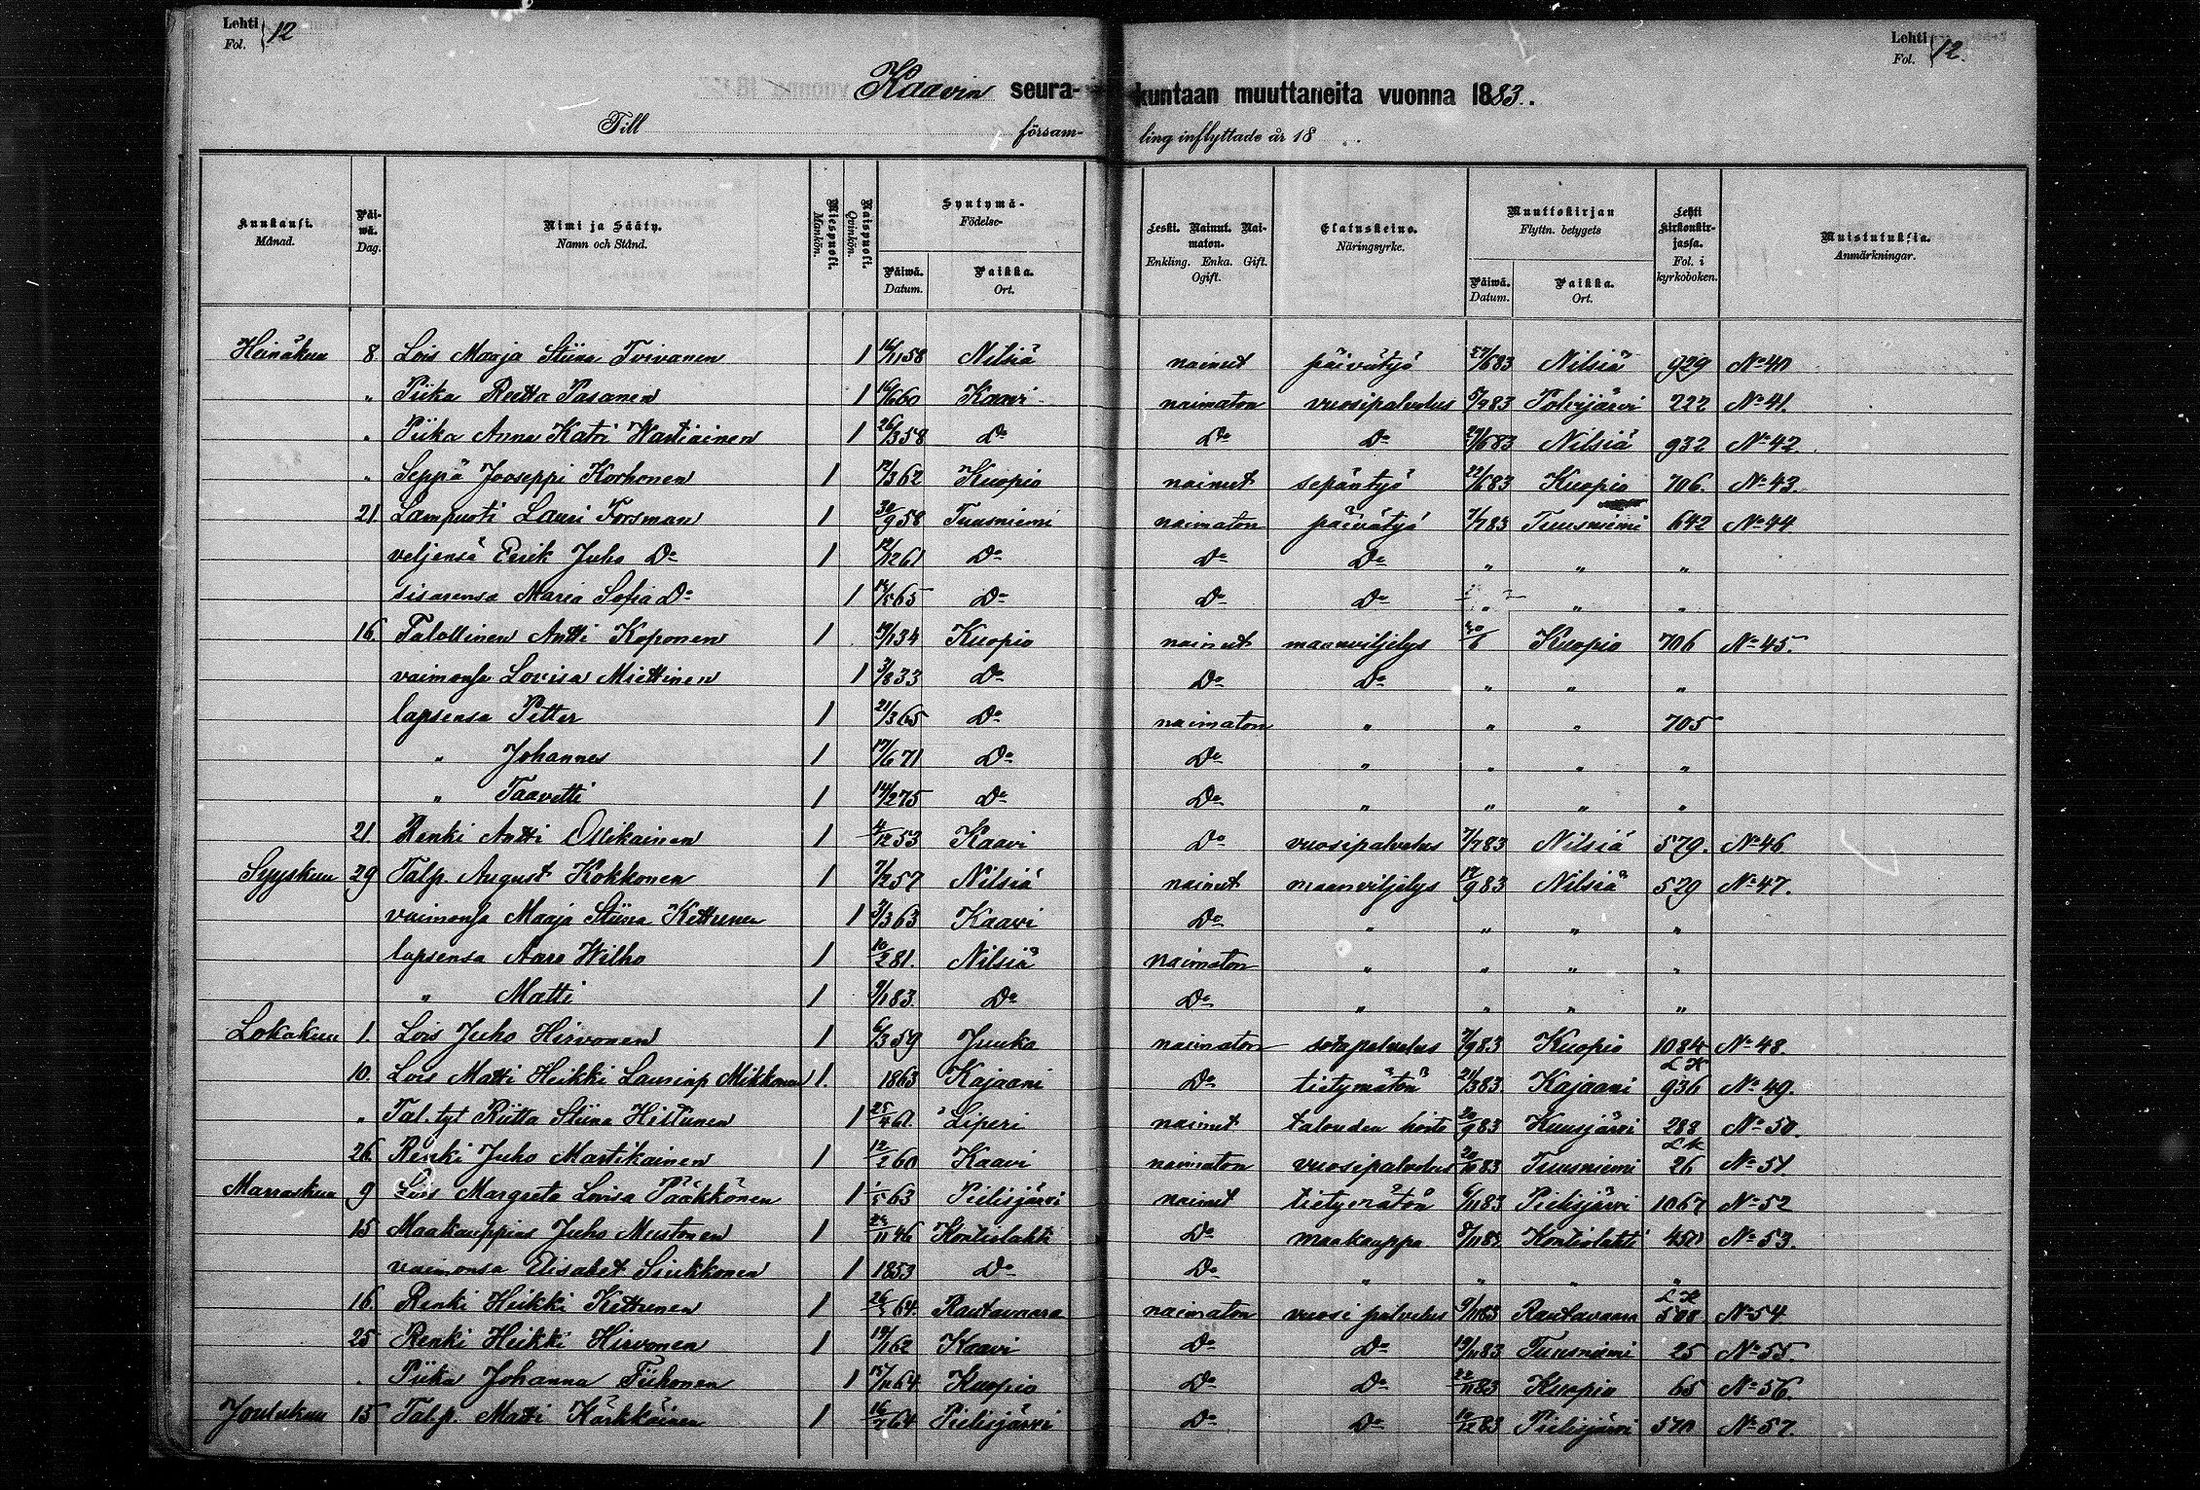 Lehti 12
Fol.
Lehti 12.
Fol.
Kaavin seurakuntaan muuttaneita vuonna 1883.
Till församling inflyttade år 18
Kuukausi. Månad.
Päiwä. Dag.
Nimi ja Sääty. Namn och Stånd.
Miespuoli. Mankön.
Naispuoli. Qvinkön.
Syntymä- Födelse-
Päiwä. Datum.
Paikka. Ort.
Leski. Nainut. Naimaton. Enkling. Enka. Gift. Ogift.
Elatuskeino. Näringsyrke.
Muuttokirjan Flyttn. betygets
Päiwä. Datum.
Paikka. Ort.
Lehti kirkonkirjassa. Fol. i kyrkoboken.
Muistutuksia. Anmärkningar.
Heinäkuu 8. Lois Maaja Stiina Toivanen 1 58 Nilsiä nainut päivätyö 27/6 83 Nilsiä 929 No 40
" Piika Reetta Pasanen 1 60 Kaavi naimaton vuosipalvelus 83 Polvijärvi 222 No 41.
" Piika Anna Katri Wartiainen 1 26/3 58 Do Do Do 83 Nilsiä 932 No 42.
" Seppä Jooseppi Korhonen 1 12/3 62 Kuopio nainut sepäntyö 22/6 83 Kuopio 706. No 43.
21 Lampuoti Lauri Forsman 1 30/9 58 Tuusniemi naimaton päivätyö 7/7 83 Tuusniemi 642 No 44
veljensä Eerik Juho Do 1 12/12 61 Do Do Do " " "
sisarensa Maria Sofia Do 1 65 Do Do Do " " "
16. Talollinen Antti Koponen 1 34 Kuopio nainut maanviljelys 30/6 Kuopio 706 No 45.
vaimonsa Lovisa Miettinen 1 3/8 33 Do Do Do " " "
lapsensa Petter 1 21/3 65 Do naimaton " " " 705
" Johannes 1 17/6 71 Do Do " " " "
" Taavetti 1 14/2 75 Do Do " " " "
21. Renki Antti Ollikainen 1 4/12 53 Kaavi Do vuosipalvelus 7/7 83 Nilsiä 579. No 46
Syyskuu 29 Talp. August Kokkonen 1 57 Nilsiä nainut maanviljelys 12/9 83 Nilsiä 529 No 47.
vaimonsa Maaja Stiina Kettunen 1 3/3 63 Kaavi Do " " " "
lapsensa Aaro Wilho 1 10/2 81. Nilsiä naimaton " " " "
" Matti 1 9/1 83. Do Do " " " "
Lokakuu 1. Lois Juho Hirvonen 1 6/3 59 Juuka naimaton sotapalvelus 83 Kuopio 1084 No 48.
10. Lois Matti Heikki Laurinp Mikkonen 1. 1863 Kajaani Do tietymätön 83. Kajaani L K 936 No 49.
" Tal.tyt Riitta Stiina Hiltunen 1 25/4 61. Liperi nainut talouden hoito 20/9 83 Kuusjärvi 288 No 50.
26. Renki Juho Martikainen 1 12/2 60 Kaavi naimaton vuosipalvelus 20/10 83 Tuusniemi L K 26 No 51
Marraskuu 9 Lois Margreta Lovisa Pääkkönen 1 1/5 63 Pielisjärvi nainut tietymätön 6/11 83 Pielisjärvi 1067 No 52
15 Maakauppias Juho Mustonen 1 46 Kontiolahti Do maakauppa 8/11 83. Kontiolahti No 53.
vaimonsa Elisabet Sirkkonen 1 1853 Do Do " " " "
16. Renki Heikki Kettunen 1 64. Rautavaara naimaton vuosipalvelus 83 Rautavaara L K 508 No 54
25 Renki Heikki Hirvonen 1 19/1 62 Kaavi Do Do 19/11 83 Tuusniemi 25 No 55.
" Piika Johanna Tiihonen 1 64 Kuopio Do Do 22/11 83 Kuopio 65 No 56.
Joulukuu 15 Talp. Matti Kärkkäinen 1 64 Pielisjärvi Do Do 83 Pielisjärvi 570 No 57.